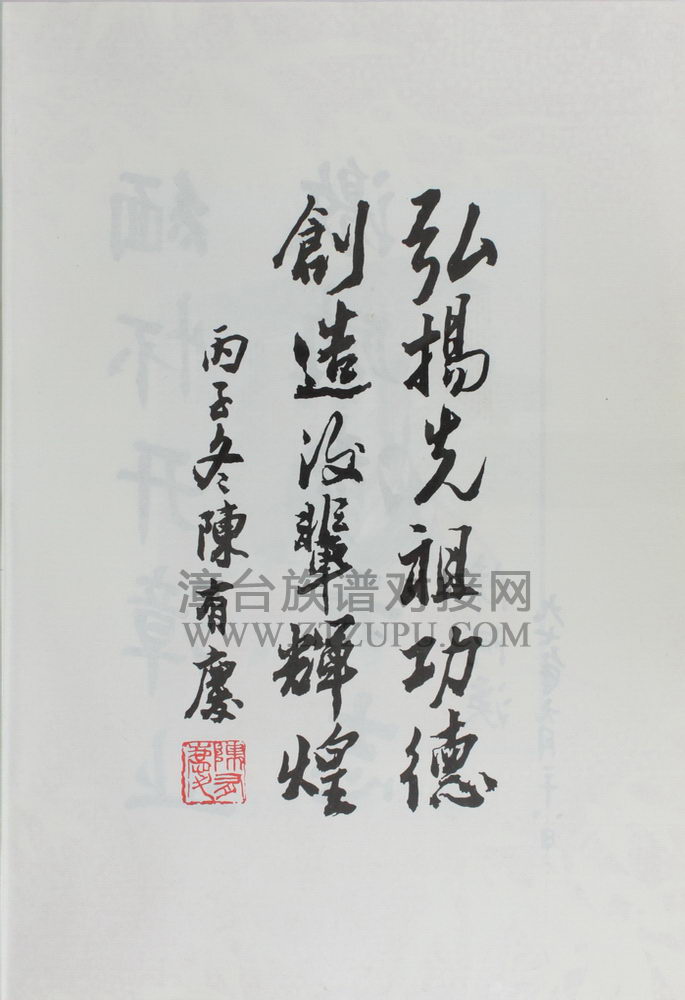 弘揚先祖功德
創造後輩輝煌
丙子冬陳有慶
陳有慶
漳台族谱对接网
WWW.ZTZUPU.COM